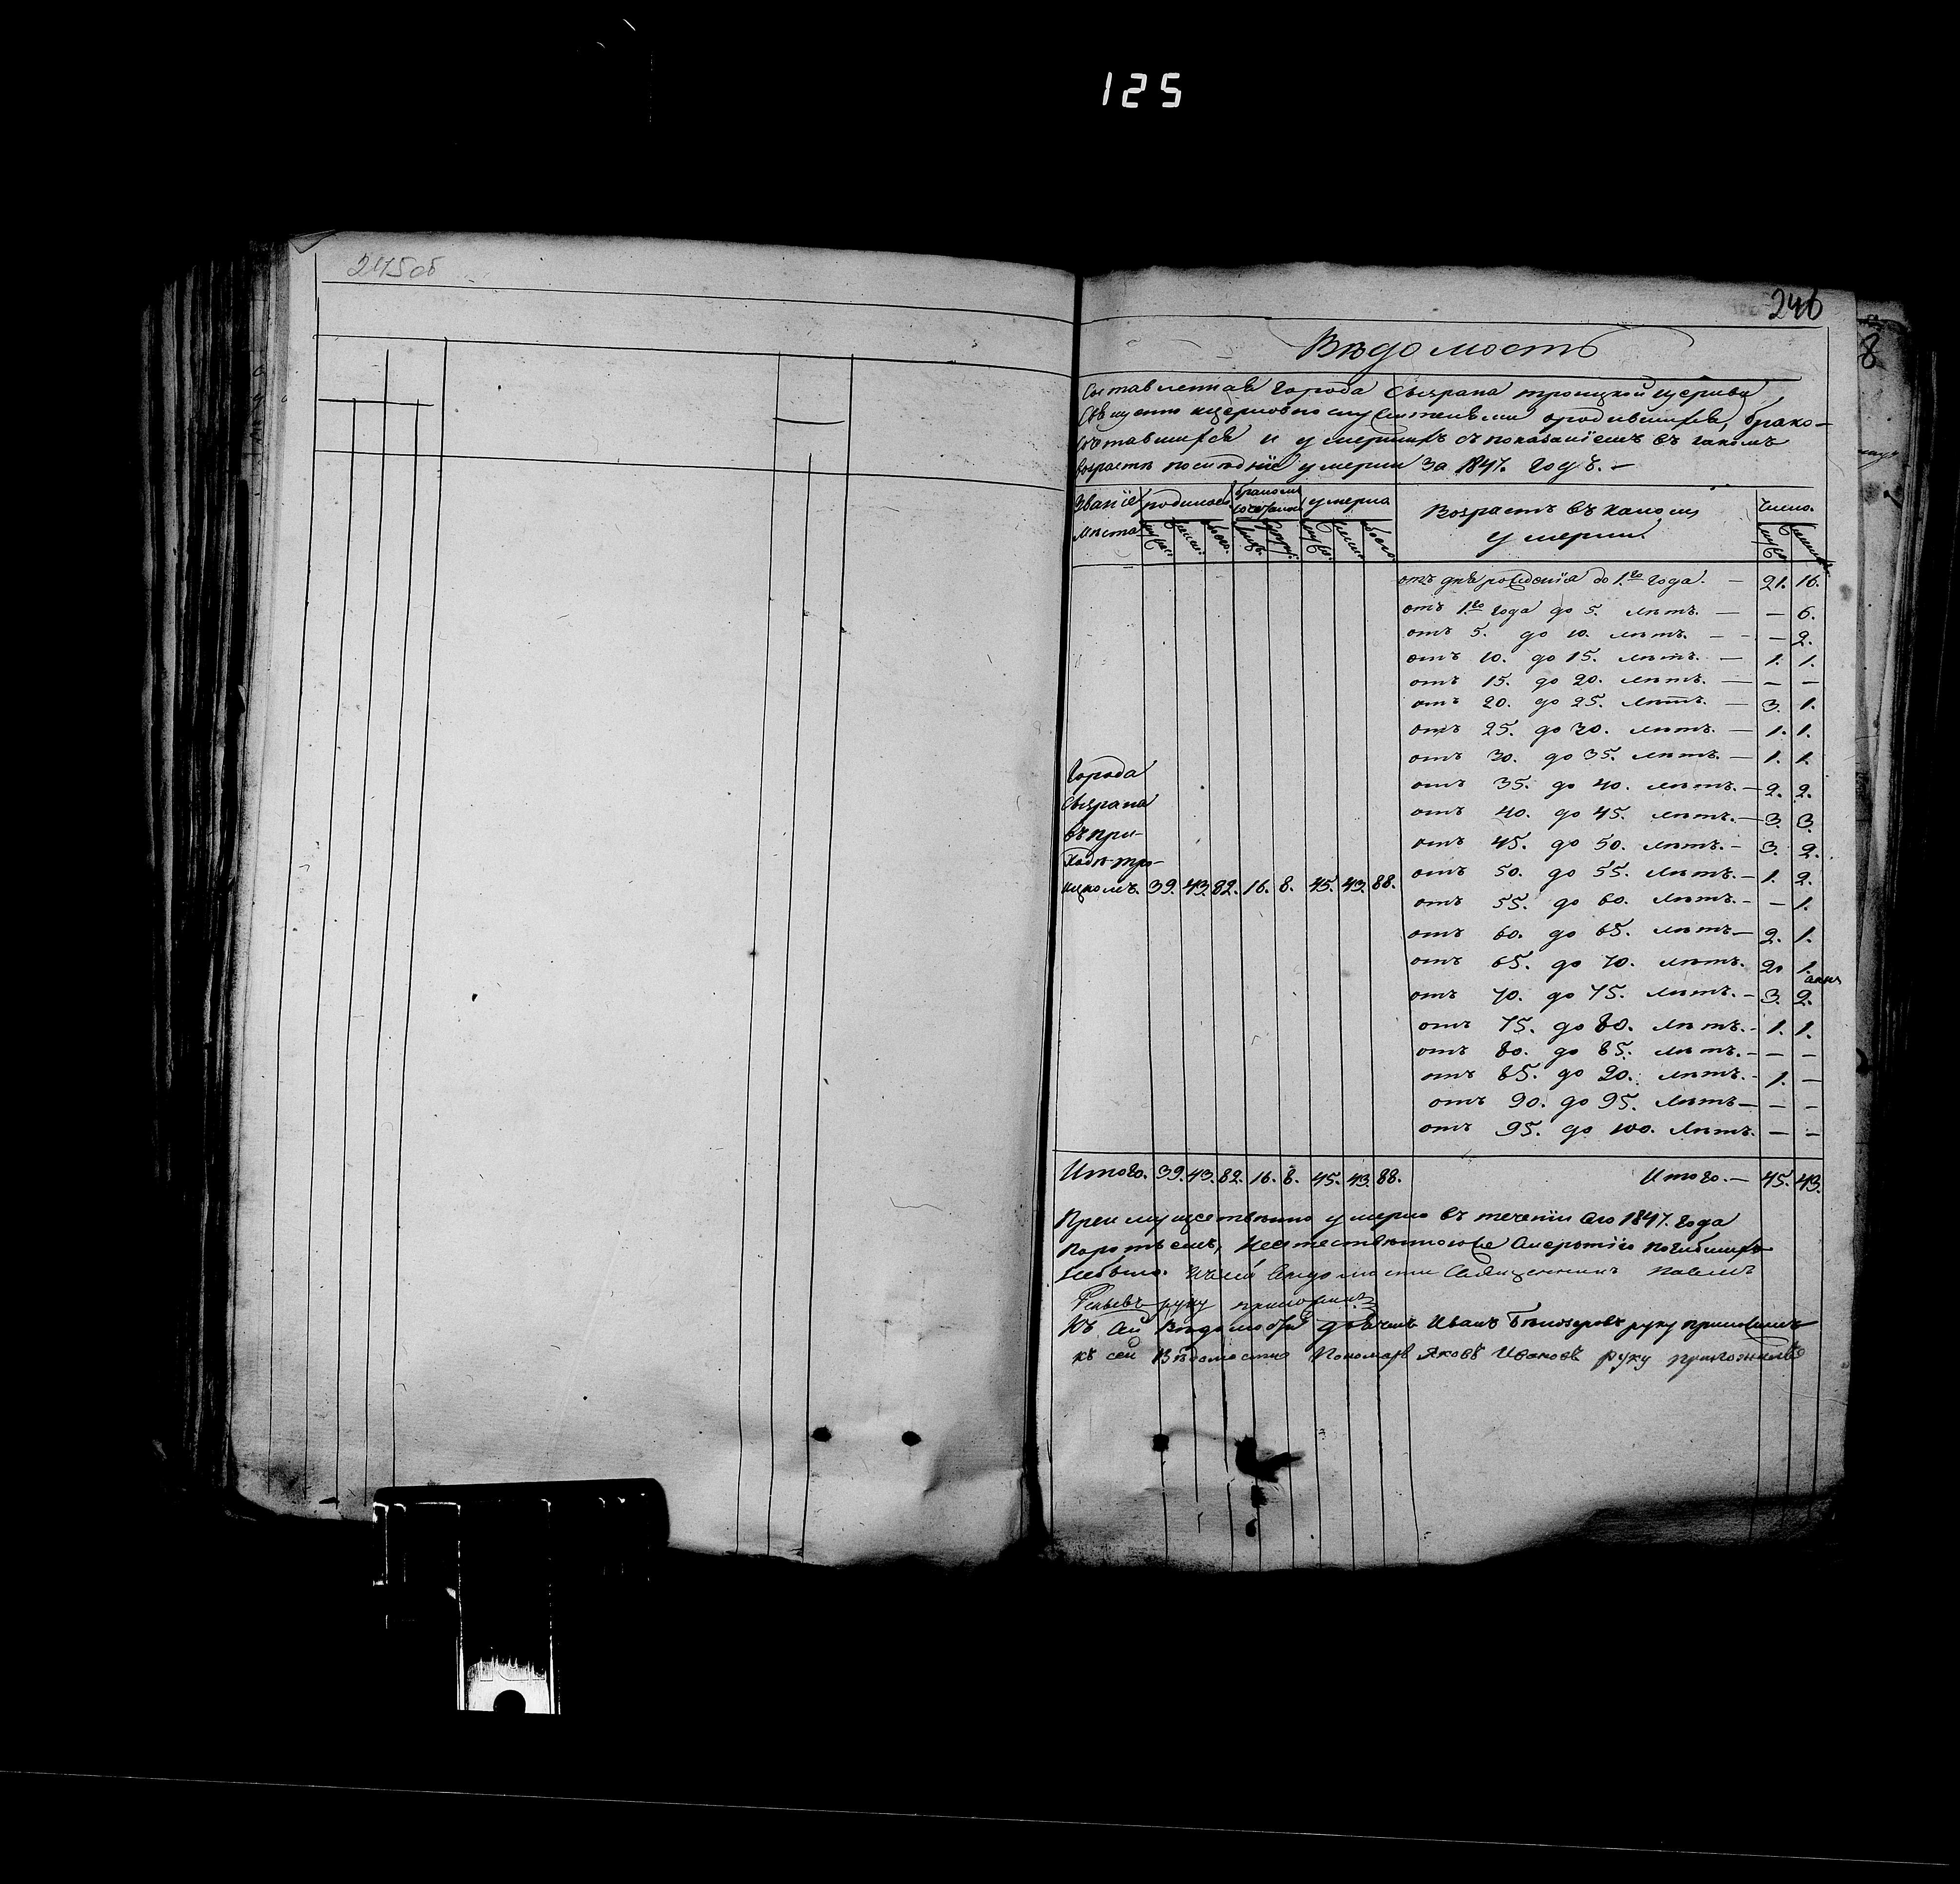 125
245об
246
8
Вѣдомость
Составленная города Сызрана троицкой церкви
Священно церковно служителями о родившихся, брако-
сочетавшихся и умершихъ съ показаніемъ въ какомъ
возрастѣ послѣдніе умерли за 1847. годъ. —
Званіе мѣста родилось бракомъ сочетано умерло Возрастъ въ какомъ умерли. Число.
муж. женс. обоего. муж. женс. обоего.
отъ дня рожденія до 1.го года. — 21. 16.
отъ 1.го года до 5. лѣтъ. — — 6.
отъ 5. до 10. лѣтъ. — — 2.
отъ 10. до 15. лѣтъ. — 1. 1.
отъ 15. до 20. лѣтъ. — — —
отъ 20. до 25. лѣтъ. — 3. 1.
отъ 25. до 30. лѣтъ. — 1. 1.
отъ 30. до 35. лѣтъ. — 1. 1.
отъ 35. до 40. лѣтъ. — 2. 2.
отъ 40. до 45. лѣтъ. — 3. 3.
отъ 45. до 50. лѣтъ. — 3. 2.
отъ 50. до 55. лѣтъ. — 1. 2.
отъ 55. до 60. лѣтъ. — — 1.
отъ 60. до 65. лѣтъ — 2. 1.
отъ 65. до 70. лѣтъ. 2. 1.
отъ 70. до 75. лѣтъ. — 3. 2.
отъ 75. до 80. лѣтъ. — 1. 1.
отъ 80. до 85. лѣтъ. — — —
отъ 85. до 90. лѣтъ. — 1. —
отъ 90. до 95. лѣтъ — — —
отъ 95. до 100. лѣтъ. — —
Города
Сызрана
въ при-
ходѣ тро-
ицкомъ. 39. 43. 82. 16. 8. 45. 43. 88.
Итого. 39. 43. 82. 16. 8. 45. 43. 88. Итого. — 45. 43.
Преимущественно умерло въ теченіи сего 1847. года
, неестественною же смертію погибшихъ
небыло. Къ сей вѣдомости Священникъ Павелъ
руку приложилъ
Къ сей Вѣдомости дьячекъ Иванъ Бѣлозеровъ руку приложилъ
къ сей Вѣдомости Пономарь Яковъ Ивановъ руку приложилъ